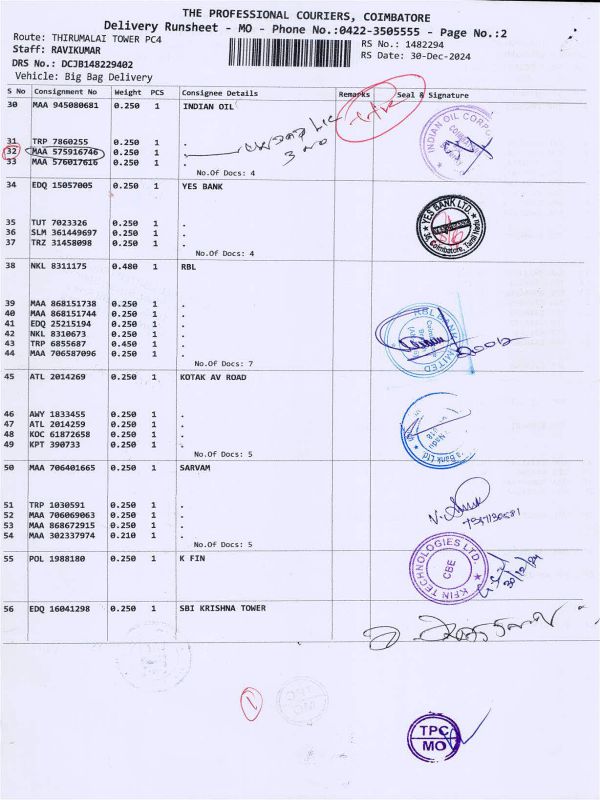 THE PROFESSIONAL COURIERS, COIMBATORE
Delivery Runsheet - MO - Phone No.:0422-3505555 - Page No.:2
Route: THIRUMALAI TOWER PC4
RS No.: 1482294
Staff: RAVIKUMAR
RS Date: 30-Dec-2024
DRS No.: DCJB148229402
Vehicle: Big Bag Delivery
S No Consignment No Weight PCS Consignee Details Remarks Seal & Signature
30 MAA 945080681 0.250 1 INDIAN OIL
31 TRP 7860255 0.250 1 .
32 MAA 575916746 0.250 1 .
33 MAA 576017616 0.250 1 .
No.Of Docs: 4
INDIAN OIL CORPO
34 EDQ 15057005 0.250 1 YES BANK
35 TUT 7023326 0.250 1 .
36 SLM 361449697 0.250 1 .
37 TRZ 31458098 0.250 1 .
No.Of Docs: 4
YES BANK LTD.
Coimbatore, Tamil Nadu
38 NKL 8311175 0.480 1 RBL
39 MAA 868151738 0.250 1 .
40 MAA 868151744 0.250 1 .
41 EDQ 25215194 0.250 1 .
42 NKL 8310673 0.250 1 .
43 TRP 6855687 0.450 1 .
44 MAA 706587096 0.250 1 .
No.Of Docs: 7
RBL BANK LIMITED
45 ATL 2014269 0.250 1 KOTAK AV ROAD
46 AWY 1833455 0.250 1 .
47 ATL 2014259 0.250 1 .
48 KDC 61872658 0.250 1 .
49 KPT 390733 0.250 1 .
No.Of Docs: 5
Bank Ltd.
50 MAA 706401665 0.250 1 SARVAM
51 TRP 1030591 0.250 1 .
52 MAA 706069063 0.250 1 .
53 MAA 868672915 0.250 1 .
54 MAA 302337974 0.210 1 .
No.Of Docs: 5
55 POL 1988180 0.250 1 K FIN
KFIN TECHNOLOGIES LTD.
CBE
30/12/24
56 EDQ 16041298 0.250 1 SBI KRISHNA TOWER
1
TPC
MO